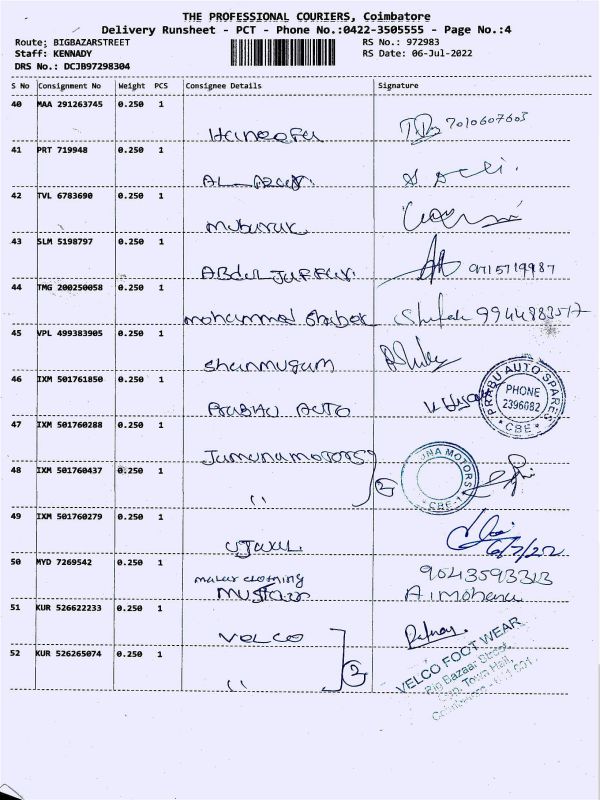 THE PROFESSIONAL COURIERS, Coimbatore
Delivery Runsheet - PCT - Phone No.:0422-3505555 - Page No.:4
Route: BIGBAZARSTREET RS No.: 972983
Staff: KENNADY RS Date: 06-Jul-2022
DRS No.: DCJB97298304
S No Consignment No Weight PCS Consignee Details Signature
40 MAA 291263745 0.250 1
Haneefa 7010607603
41 PRT 719948 0.250 1
42 TVL 6783690 0.250 1
Mubarak
43 SLM 5198797 0.250 1
ABdul Jaffar 9715719987
44 TMG 200250058 0.250 1
mohammed Shabek 9944883517
45 VPL 499383905 0.250 1
Shanmugam
46 IXM 501761850 0.250 1
Prabhu AUTO
PRABU AUTO SPARES
PHONE
2396082
* CBE *
47 IXM 501760288 0.250 1
Jamunamotors
48 IXM 501760437 0.250 1
" 2
UNA MOTORS
CBE-1
49 IXM 501760279 0.250 1
6/7/22
50 MYD 7269542 0.250 1
malar clothing 9043593313
A.Mohana
51 KUR 526622233 0.250 1
VELCO
52 KUR 526265074 0.250 1
" 2
VELCO FOOT WEAR
Big Bazaar Street,
Opp. Town Hall,
Coimbatore - 641 001.